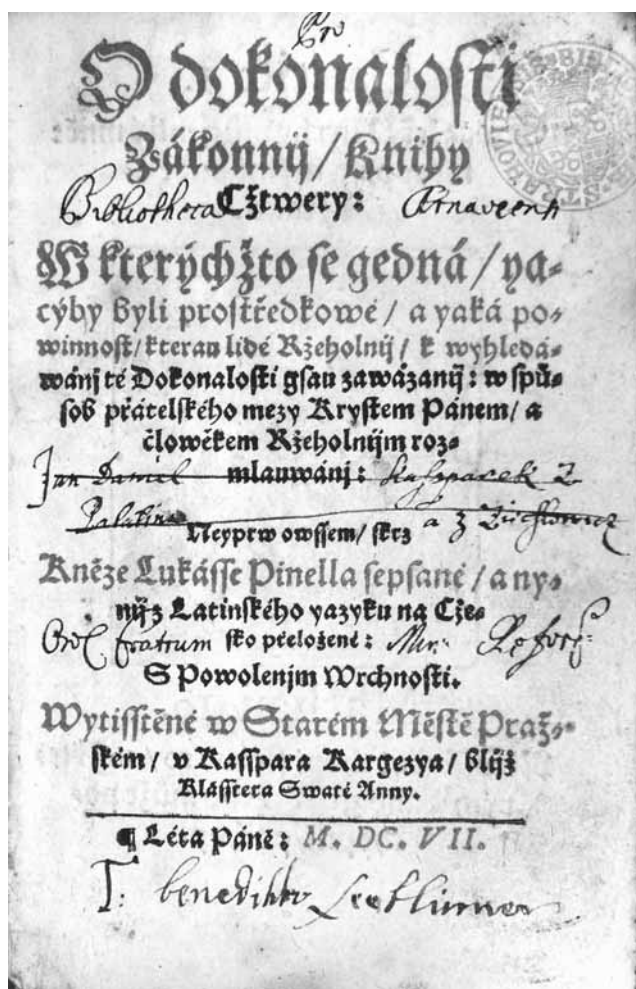 Pro
O dokonalosti
Zákonnij / Knihy
Bibliotheca Cžtwery:
W kterýchžto se gedná / ya-
cýby byli prostředkowé / a yaká po-
winnost / kterau lidé Ržeholnij / k wyhledá-
wánj té Dokonalosti gsau zawázanij: w spů-
sob přátelského mezy Krystem Pánem / a
člowěkem Ržeholnijm roz-
Jan Daniel mlauwánj: Kasspárek Z
a z
Neyprw owssem / skrz
Kněze Lukásse Pinella sepsané / a ny-
nij z Latinského yazyku na Cže-
Fratrum sko přeložené: Min:
S Powolenjm Wrchnosti.
Wytisstěné w Starém Městě Praž-
ském / v Kasspara Kargezya / blijž
Klásstera Swaté Anny.
¶ Léta Páně: M. DC. VII.